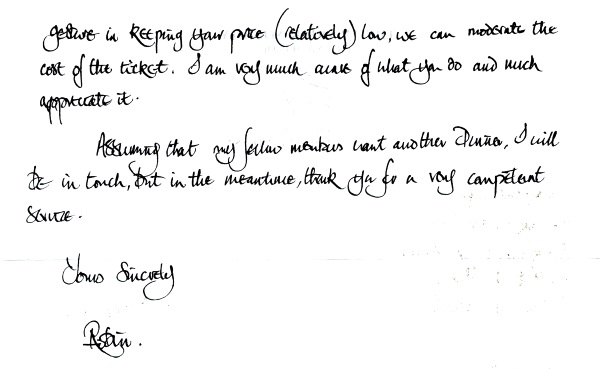 gesture in keeping your price (relatively) low, we can moderate the
cost of the ticket. I am very much aware of what you do and much
appreciate it.
Assuming that my fellow members want another Dinner, I will
be in touch, but in the meantime, thank you for a very competent
service.
Yours Sincerely
Robin.